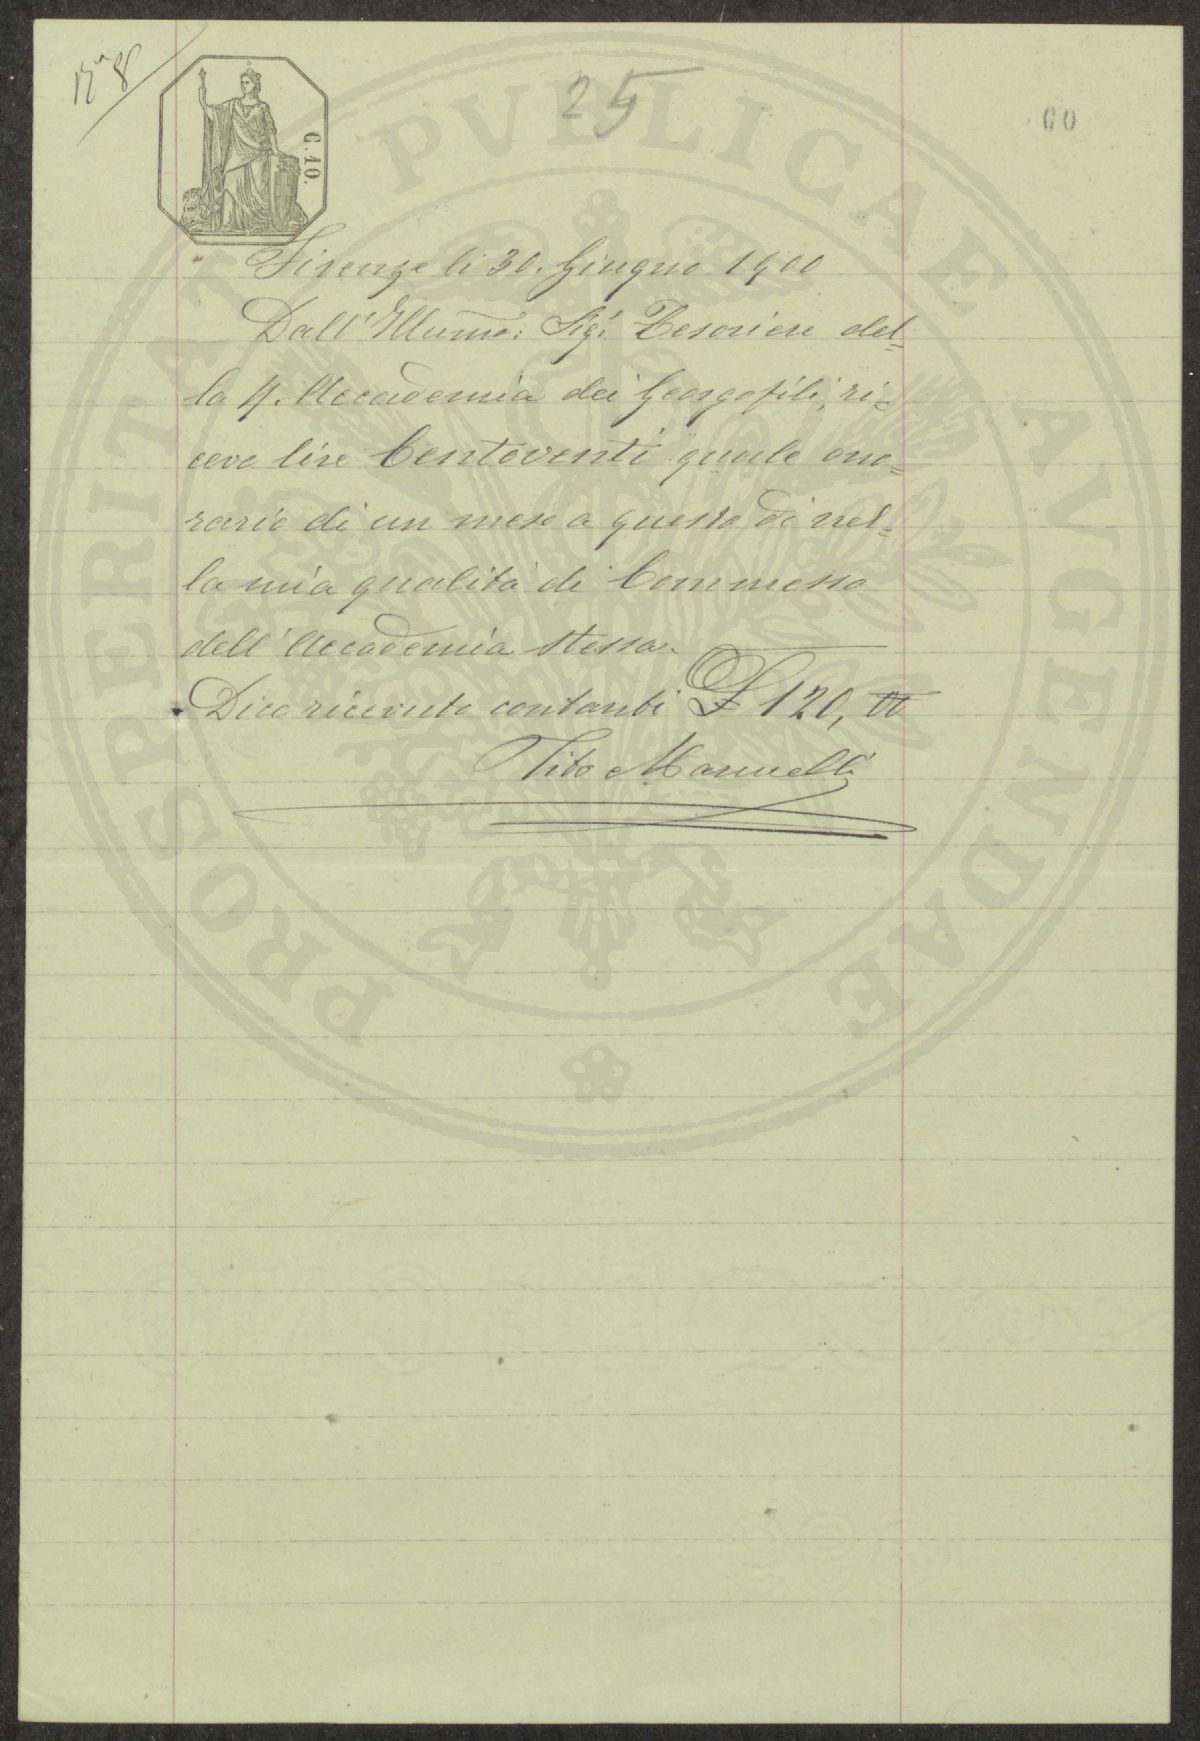 N° 8
25
60
C. 10.
PROSPERITATI PVBLICAE AVGENDAE
Firenze li 30. Giugno 1900
Dall' Illumo: Sigr Tesoriere del=
la R. Accademia dei Georgofili, ri=
cevo lire Centoventi quale ono=
rario di un mese a questo dì nel=
la mia qualità di Commesso
dell' Accademia stessa.
Dico ricevute contanti £ 120, 00
Tito Marucelli